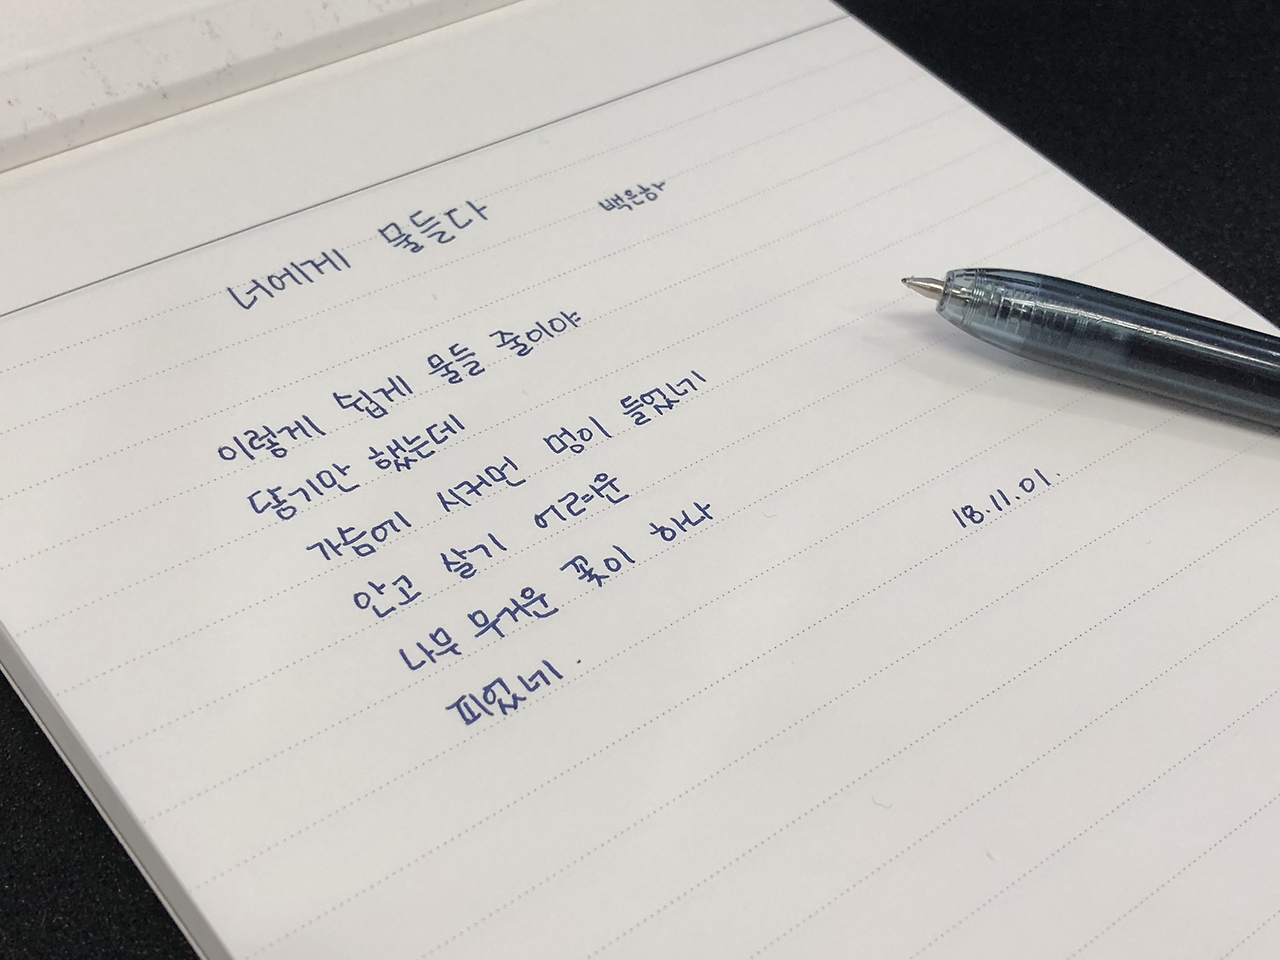 너에게 물들다 백은하
이렇게 쉽게 물들 줄이야
닿기만 했는데
가슴에 시커먼 멍이 들었네
안고 살기 어려운
나무 무거운 꽃이 하나
피었네.
18.11.01.